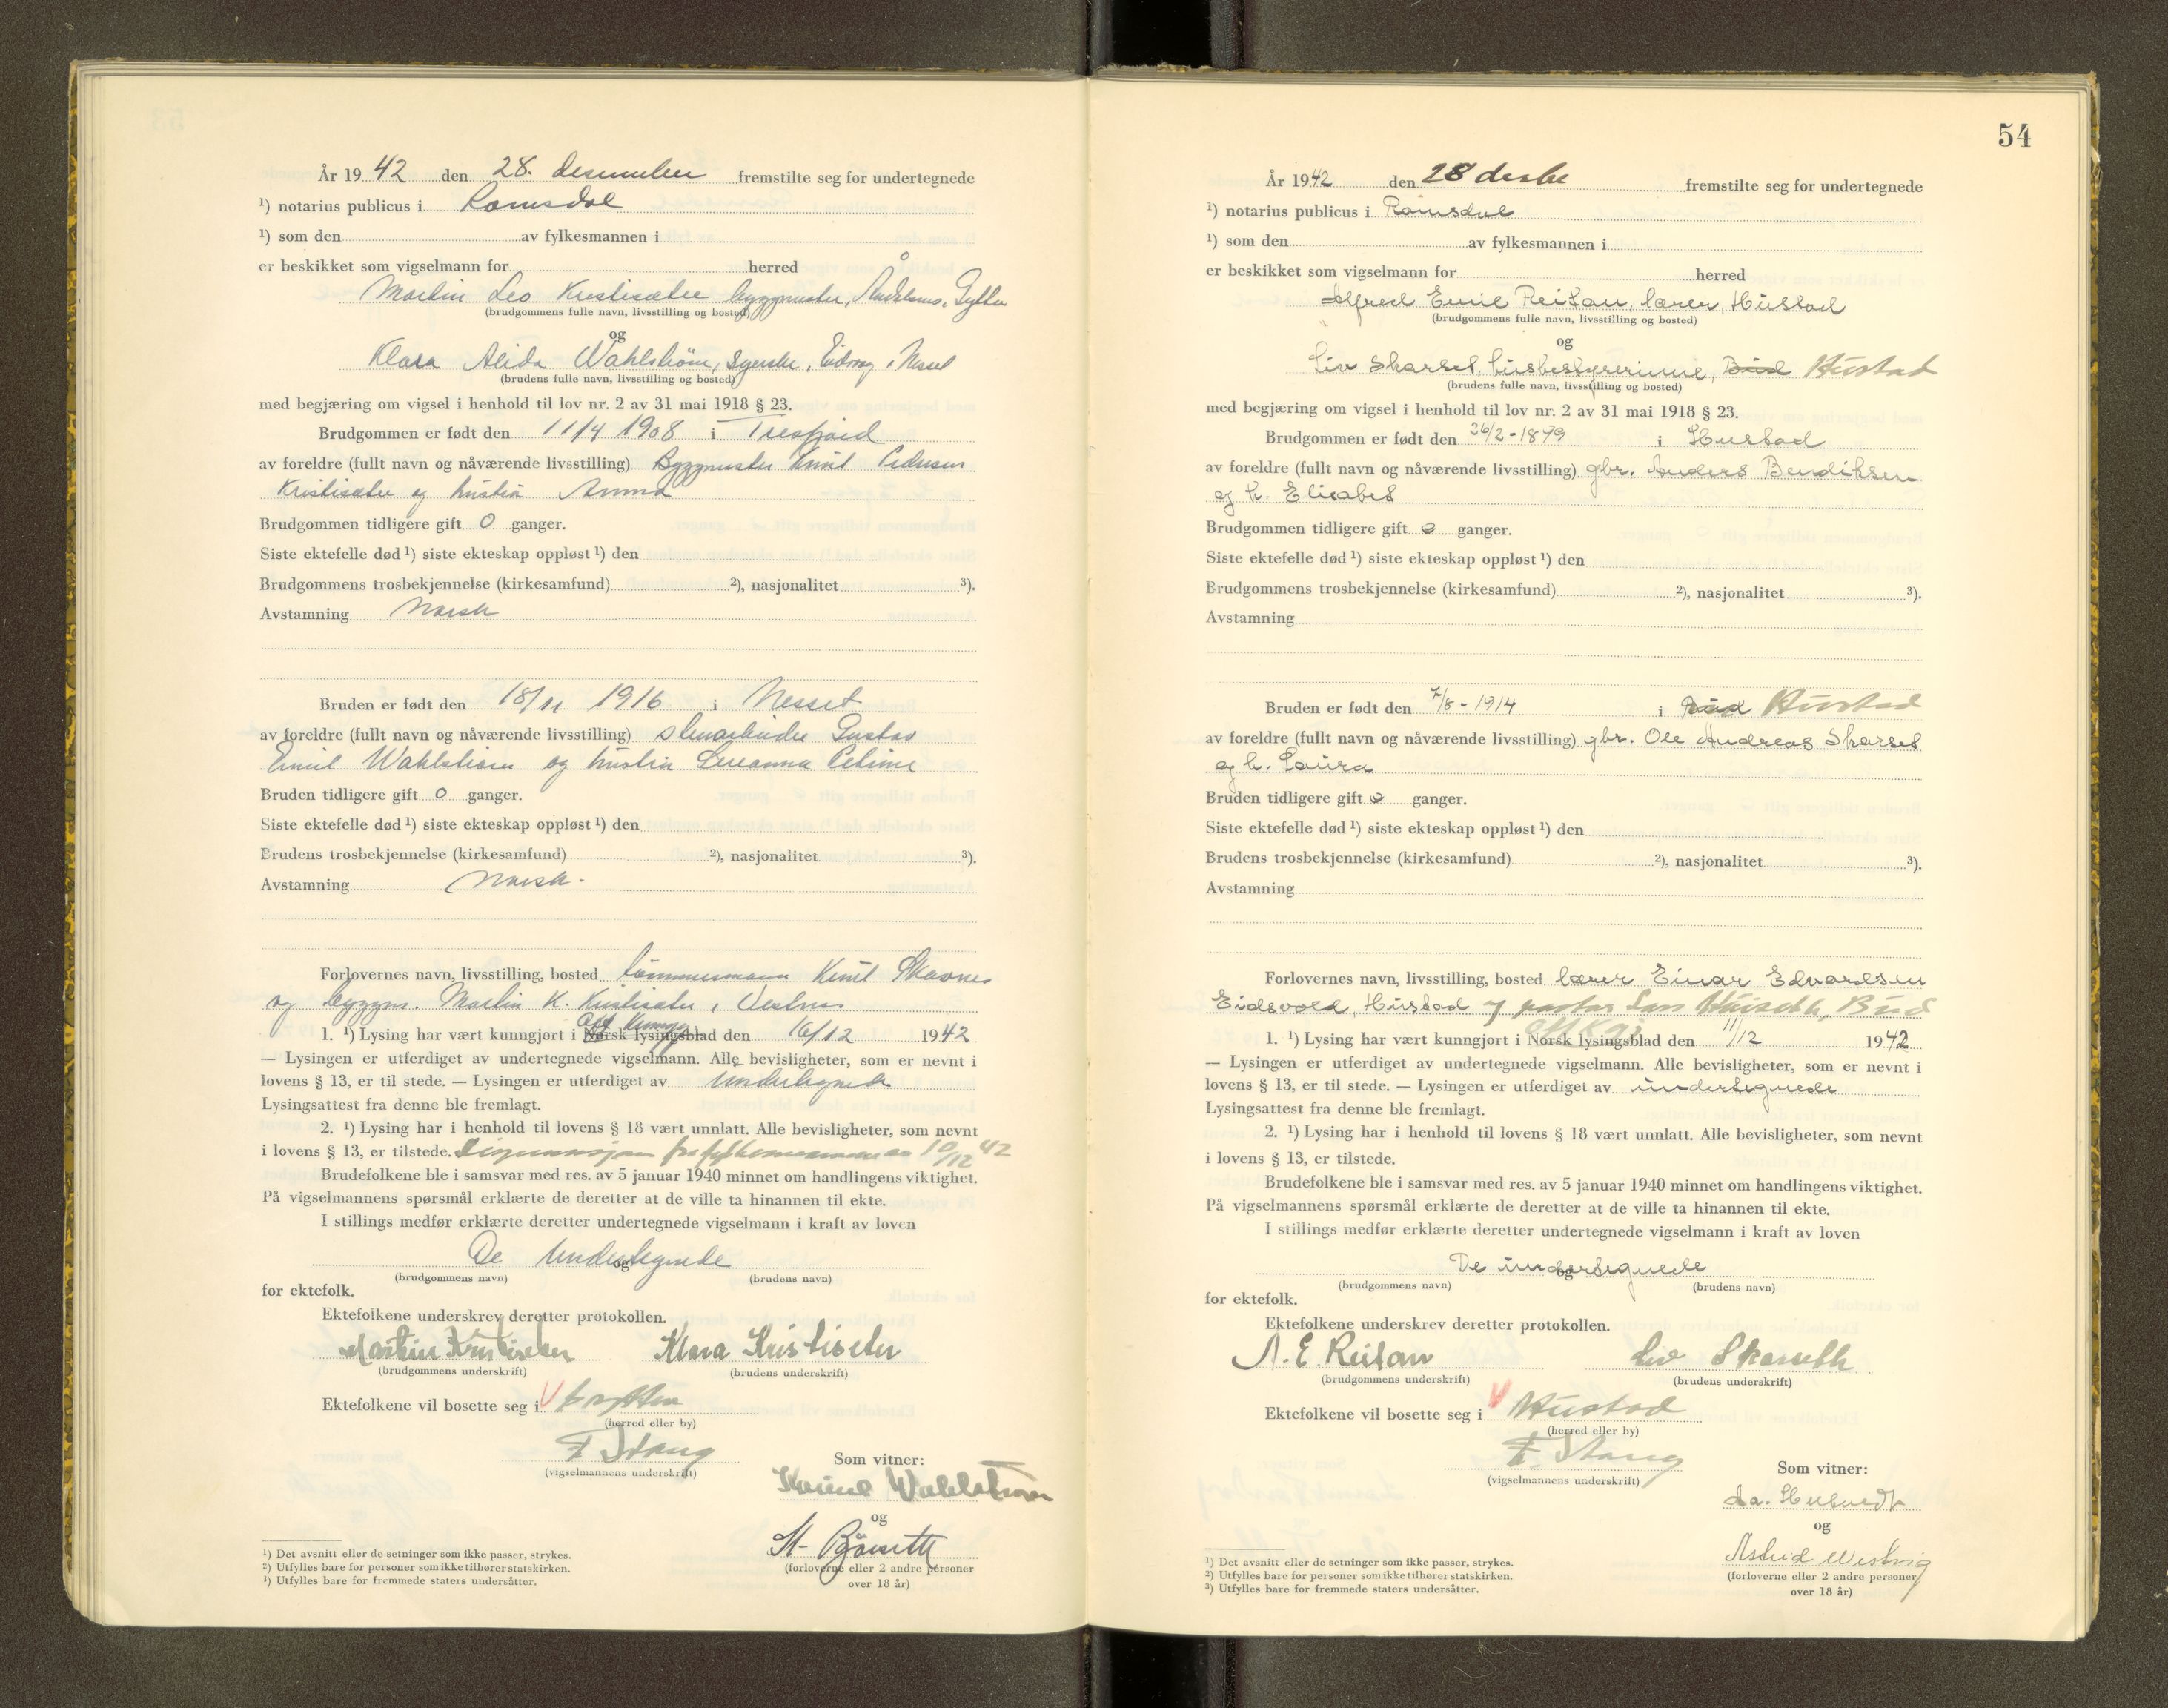 År 1942 den 28. desember fremstilte seg for undertegnede
¹) notarius publicus i Romsdal
¹) som den av fylkesmannen i
er beskikket som vigselmann for herred
Martin Leo Kristisæter byggmester, Åndalsnes, Grytten
(brudgommens fulle navn, livsstilling og bosted)
og
Klara Alida Wahlstrøm, syerske, Eidsvåg i Nesset
(brudens fulle navn, livsstilling og bosted)
med begjæring om vigsel i henhold til lov nr. 2 av 31 mai 1918 § 23.
Brudgommen er født den 11/4 1908 i Tresfjord
av foreldre (fullt navn og nåværende livsstilling) Byggmester Knut Pedersen
Kristisæter og hustru Anna
Brudgommen tidligere gift 0 ganger.
Siste ektefelle død ¹) siste ekteskap oppløst ¹) den
Brudgommens trosbekjennelse (kirkesamfund) ²), nasjonalitet ³).
Avstamning Norsk
Bruden er født den 18/11 1916 i Nesset
av foreldre (fullt navn og nåværende livsstilling) stenarbeider Gustav
Emil Wahlstrøm og hustru Susanna
Bruden tidligere gift 0 ganger.
Siste ektefelle død ¹) siste ekteskap oppløst ¹) den
Brudens trosbekjennelse (kirkesamfund) ²), nasjonalitet ³).
Avstamning Norsk.
Forlovernes navn, livsstilling, bosted tømmermann Knut
og byggm. Martin K. Kristisæter, Vestnes
1. ¹) Lysing har vært kunngjort i Norsk lysingsblad den 16/12 1942
— Lysingen er utferdiget av undertegnede vigselmann. Alle bevisligheter, som er nevnt i
lovens § 13, er til stede. — Lysingen er utferdiget av undertegnede
Lysingsattest fra denne ble fremlagt.
2. ¹) Lysing har i henhold til lovens § 18 vært unnlatt. Alle bevisligheter, som nevnt
i lovens § 13, er tilstede. Dispensasjon fra fylkesmannen av 10/12 42
Brudefolkene ble i samsvar med res. av 5 januar 1940 minnet om handlingens viktighet.
På vigselmannens spørsmål erklærte de deretter at de ville ta hinannen til ekte.
I stillings medfør erklærte deretter undertegnede vigselmann i kraft av loven
De undertegnede
og
(brudgommens navn) (brudens navn)
for ektefolk.
Ektefolkene underskrev deretter protokollen.
Martin Kristiseter Klara Kristiseter
(brudgommens underskrift) (brudens underskrift)
Ektefolkene vil bosette seg i Grytten
(herred eller by)
F Stang
(vigselmannens underskrift)
Som vitner:
Wahlstrøm
og
(forloverne eller 2 andre personer
over 18 år)
¹) Det avsnitt eller de setninger som ikke passer, strykes.
²) Utfylles bare for personer som ikke tilhører statskirken.
³) Utfylles bare for fremmede staters undersåtter.
54
År 1942 den 28 desbr fremstilte seg for undertegnede
¹) notarius publicus i Romsdal
¹) som den av fylkesmannen i
er beskikket som vigselmann for herred
Alfred Emil Reitan, lærer, Hustad
(brudgommens fulle navn, livsstilling og bosted)
og
Liv Skarset, husbestyrerinne, Bud Hustad
(brudens fulle navn, livsstilling og bosted)
med begjæring om vigsel i henhold til lov nr. 2 av 31 mai 1918 § 23.
Brudgommen er født den 26/2-1879 i Hustad
av foreldre (fullt navn og nåværende livsstilling) gbr. Anders Bendiksen
og h. Elisabet
Brudgommen tidligere gift 0 ganger.
Siste ektefelle død ¹) siste ekteskap oppløst ¹) den
Brudgommens trosbekjennelse (kirkesamfund) ²), nasjonalitet ³).
Avstamning
Bruden er født den 7/8-1914 i Bud Hustad
av foreldre (fullt navn og nåværende livsstilling) gbr. Ole Andreas Skarset
og h. Laura
Bruden tidligere gift 0 ganger.
Siste ektefelle død ¹) siste ekteskap oppløst ¹) den
Brudens trosbekjennelse (kirkesamfund) ²), nasjonalitet ³).
Avstamning
Forlovernes navn, livsstilling, bosted lærer Einar Edvardsen
Eidsvold, Hustad og Bud
1. ¹) Lysing har vært kunngjort i Norsk lysingsblad den 11/12 1942
— Lysingen er utferdiget av undertegnede vigselmann. Alle bevisligheter, som er nevnt i
lovens § 13, er til stede. — Lysingen er utferdiget av undertegnede
Lysingsattest fra denne ble fremlagt.
2. ¹) Lysing har i henhold til lovens § 18 vært unnlatt. Alle bevisligheter, som nevnt
i lovens § 13, er tilstede.
Brudefolkene ble i samsvar med res. av 5 januar 1940 minnet om handlingens viktighet.
På vigselmannens spørsmål erklærte de deretter at de ville ta hinannen til ekte.
I stillings medfør erklærte deretter undertegnede vigselmann i kraft av loven
De undertegnede
og
(brudgommens navn) (brudens navn)
for ektefolk.
Ektefolkene underskrev deretter protokollen.
A. E Reitan Liv Skarseth
(brudgommens underskrift) (brudens underskrift)
Ektefolkene vil bosette seg i Hustad
(herred eller by)
F. Stang
(vigselmannens underskrift)
Som vitner:
og
Astrid
(forloverne eller 2 andre personer
over 18 år)
¹) Det avsnitt eller de setninger som ikke passer, strykes.
²) Utfylles bare for personer som ikke tilhører statskirken.
³) Utfylles bare for fremmede staters undersåtter.